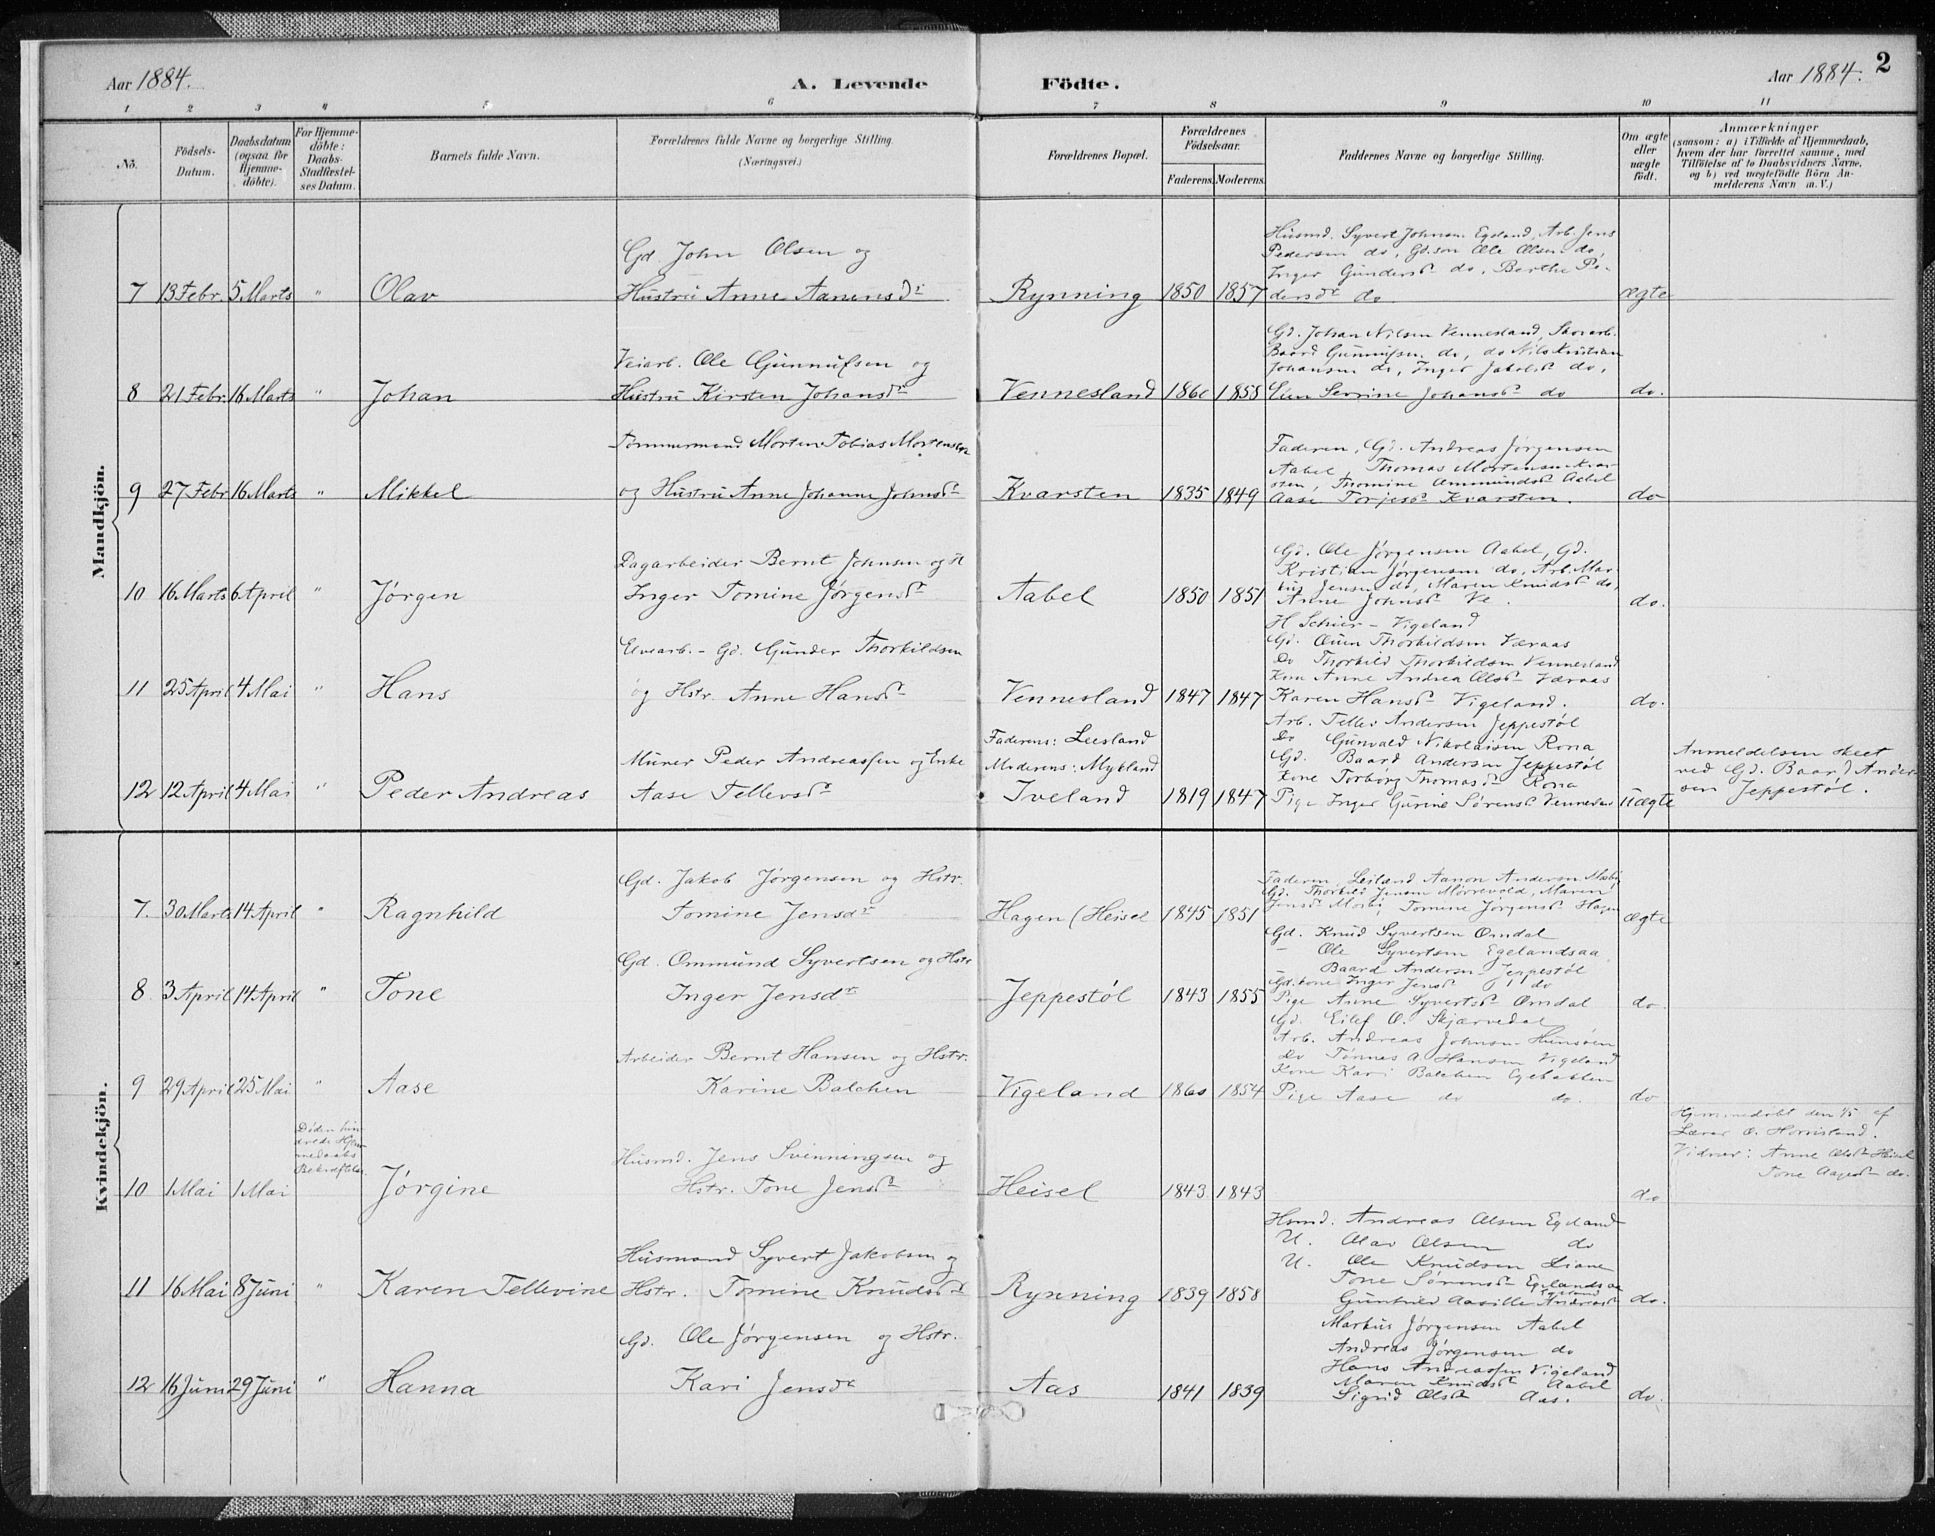 Aar 1884. A. Levende Födte. Aar 1884. 2
1 2 3 4 5 6 7 8 9 10 11
No. Födsels-Datum. Daabsdatum (ogsaa for Hjemme-döbte). For Hjemme-döbte: Daabs-Stadfæstel-ses Datum. Barnets fulde Navn. Forældrenes fulde Navne og borgerlige Stilling. (Næringsvei.) Forældrenes Bopæl. Forældrenes Födselsaar. Faderens. Moderens. Faddernes Navne og borgerlige Stilling. Om ægte eller uægte födt. Anmærkninger (saasom: a) i Tilfælde af Hjemmedaab, hvem der har forrettet samme, med Tilföielse af to Daabsvidners Navne, og b) ved uægtefödte Börn An-melderens Navn m. V.)
Mandkjön.
Gd. John Olsen og
Husmd. Syvert Johnsen Egeland, Arb. Jens
Pedersen do, Gd.søn Ole Olsen do,
Inger Gundersdr do, Berthe Pe-
7 13 Febr. 5 Marts " Olav Hustru Anne Aanensdr Rynning 1850 1857 dersdr do ægte
Veiarb. Ole Gunnufsen og
Gd. Johan Nilsen Vennesland,
Baard Gunnufsen do, do Nils Kristian
Johansen do, Inger Jakobsdr do,
8 21 Febr. 16 Marts " Johan Hustru Kirsten Johansdr Vennesland 1860 1858 Sevrine Johansdr do do.
Tømmermand Morten Tobias Mortensen
Faderen, Gd. Andreas Jørgensen
Aabel, Thomas Mortensen Kvar-
sten, Thomine Ommundsdr Aabel
9 27 Febr 16 Marts " Mikkel og Hustru Anne Johanne Johnsdr Kvarsten 1835 1849 Aase Torjesdr Kvarsten. do
Dagarbeider Bernt Johnsen og H
Gd. Ole Jørgensen Aabel, Gd.
Kristian Jørgensen do, Arb. Mar-
kus Jensen do, Maren Knudsdr do,
10 16 Marts 6 April " Jørgen Inger Tomine Jørgensdr Aabel 1850 1851 Anne Johnsdr Ve. do.
H Schier - Vigeland
Elvearb. - Gd. Gunder Thorkildsen
Gd. Ouen Thorkildsen Væraas
Do Thorkild Thorkildsen Vennesland
Kone Anne Andrea Olsdr Væraas
11 25 April 4 Mai " Hans og Hstr. Anne Hansdr Vennesland 1847 1847 Karen Hansdr Vigeland. do.
Arb. Tellev Andersen Jeppestøl
Faderens: Leesland
Do Gunvald Nikolaisen Rona
Murer Peder Andreassen og Enke Moderens: Mykland
Gd. Baard Andersen Jeppestøl
Anmeldelsen skeet
Kone Torborg Thomasdr Rona
ved Gd. Baard Ander-
12 12 April 4 Mai " Peder Andreas Aase Tellevsdr Iveland 1819 1847 Pige Inger Gurine Sørensdr Vennesland Uægte sen Jeppestøl.
Kvindekjön.
Gd. Jakob Jørgensen og Hstr.
Faderen, Aanon Andersen
Gd. Thorkild Jensen Mørrevold, Maren
7. 30 Marts 14 April " Ragnhild Tomine Jensdr Hagen (Heisel 1845 1851 Jensdr Tomine Jørgensdr Hagen ægte
Gd. Knud Syvertsen Omdal
Gd. Ommund Syvertsen og Hstr
- Ole Syvertsen Egelandsaa
Baard Andersen Jeppestøl
Gd.kone Inger Jensdr do
8 3 April 14 April " Tone Inger Jensdr Jeppestøl 1843 1855 Pige Anne Syvertsdr Omdal do
Gd. Eilef O. Skjærvedal
Arbeider Bernt Hansen og Hstr.
Arb. Andreas Johnsen Hunsøen
Do Tønnes A. Hansen Vigeland
Kone Kari Balchen
9 29 April 25 Mai " Aase Karine Balchen Vigeland 1860 1854 Pige Aase do do. do
Døden hin-
drede Hjem-
medaabs
Bekræftelse
Husmd. Jens Svenningsen og
Hjemmedøbt den 1/5 af
Lærer O.
Vidner: Anne Olsdr Heisel
Tone Aagesdr do.
10 1 Mai 1 Mai Jørgine Hstr. Tone Jensdr Heisel 1843 1843 do
Husmd. Andreas Olsen Egeland
Husmand Syvert Jakobsen og
U. Olav Olsen do
U. Ole Knudsen Liane
Tone Sørensdr Egelandsaa
Egeland
11 16 Mai 8 Juni " Karen Tellevine Hstr. Tomine Knudsdr Rynning 1839 1858 Gunhild Aasille Andreasdr do.
Gd. Ole Jørgensen og Hstr.
Markus Jørgensen Aabel
Andreas Jørgensen do
Hans Andreassen Vigeland
Maren Knudsdr Aabel
12 16 Juni 29 Juni " Hanna Kari Jensdr Aas 1841 1839 Sigrid Olsdr Aas. do.